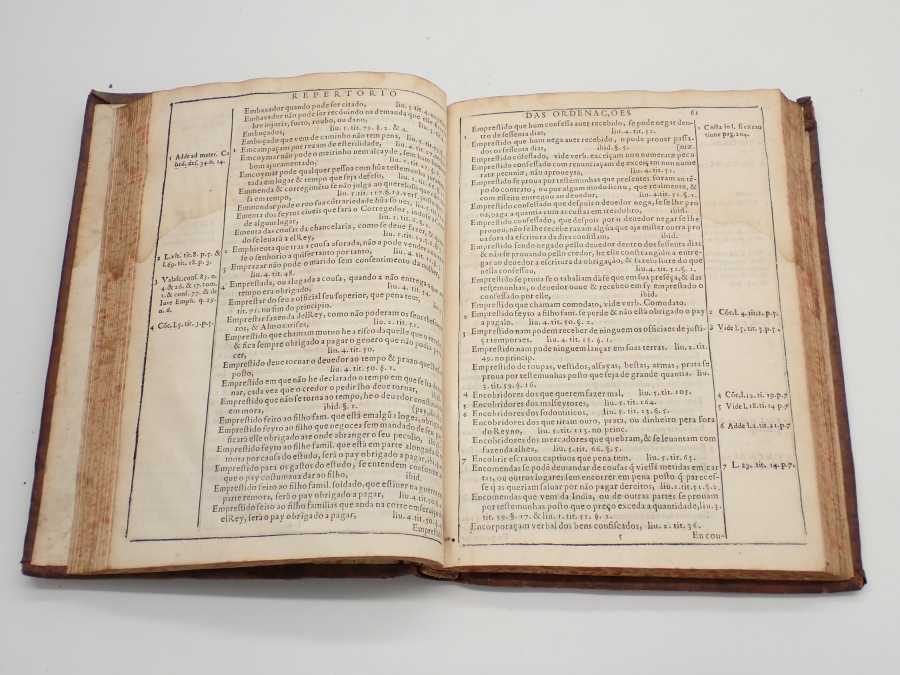 REPERTORIO
Embaxador quando pode ser citado, liu. 5. tit. 4.
Embaxador não pode ser reconuindo na demanda que elle
bre injuria, furto, roubo, ou dano,
Embuçados, liu. 5. tit. 79. §. 2. & 4.
Embuçado que vem de caminho não tem pena,
Encampaçam por rezam de esterilidade,
Emcoymar não pode o meirinho nem alcayde, sem hum
bom ajuramentado,
Emcoymar pode qualquer pessoa com hũa testemunha
tada em lugar & tempo que seja defeso,
Emmenda & corregimẽto se não julga ao quereloso
sa em tempo, liu. 5. tit. 117. §. 19. vers.
Emmendar pode o reo sua cõtrariedade hũa só vez,
Ementa dos feytos ciueis que fará o Corregedor, indose
de algum lugar, liu. 1. tit. 6. §. 2.
Ementa das cousas da chancelaria, como se deue fazer, &
do se leuará a elRey,
Emphiteota que tras a cousa aforada, não a pode vender,
se o senhorio a quiser tanto por tanto,
Emprazar não pode o marido sem consentimento da molher,
liu. 4. tit. 48.
Emprestada, ou alugada a cousa, quando a não entrega
tempo era obrigado, liu. 4. tit. 54.
Emprestar do seu a official seu superior, que pena tem,
tit. 71. no fim do principio.
Emprestar fazenda delRey, como não poderam os seus thesou
ros, & Almoxarifes, liu. 2. tit. 51.
Emprestido que chamam mutuo he a risco daquelle que o rece
& fica sempre obrigado a pagar o genero que não podia
cer, liu. 4. tit. 50.
Emprestido deue tornar o deuedor ao tempo & prazo que
posto, liu. 4. tit. 50. §. 1.
Emprestido em que não he declarado o tempo em que se ha de
nar, cada vez que o credor o pedir lho deue tornar,
Emprestido que não se torna ao tempo, he o deuedor constituido
em mora, ibid. §. 1.
Emprestido feito ao filho fam. que está em algũa logea,
Emprestido feyto ao filho que negocea sem mandado de seu
ficará elle obrigado ate onde abranger o seu peculio,
Emprestido feyto ao filho famil. que está em parte alongada &
mora por causa do estudo, será o pay obrigado a pagar, ibid.
Emprestido para os gastos do estudo, se entendem conforme
que o pay costumaua dar ao filho, ibid.
Emprestido feito ao filho famil. soldado, que estiuer na guerra
parte remota, será o pay obrigado a pagar, liu. 4. tit. 50. §.
Emprestido feito ao filho familias que anda na corte em seruiço
elRey, será o pay obrigado a pagar, liu. 4. tit. 50. §. 4.
1 Adde ad mater. Ca
bed. des. 34. n. 14.
2 L. vlt. tit. 8. p. 5. &
l. 69. tit. 18. p. 3.
3 Valasc. conf. 83. n.
4. & 26. & 17. tom.
1. & conf. 77. & de
Iure Emph. q. 29.
n. 6.
4 Cõc. l. 5. tit. 3. p. 5.
DAS ORDENAÇOES 61
Emprestido que hum confessa auer recebido, se pode negar den-
tro de sessenta dias, liu. 4. tit. 51.
1 Emprestido que hum nega auer recebido, o pode prouar passa-
dos os sessenta dias, ibid. §. 5.
Emprestido cõfessado, vide verb. exceiçam non numeratæ pecu (niæ.
Emprestido confessado com renunciaçam de exceiçam non nume
ratæ pecuniæ, não aproueyta, liu. 4. tit. 51.
Emprestido se proua por testemunhas que presentes foram ao tẽ-
po do contrato, ou por algum modo licito, que realmente, &
com effeito entregou ao deuedor, liu. 4. tit. 51. §. 1.
Emprestido confessado que despois o deuedor nega, se se lhe pro
ua, paga a quantia com as custas em tresdobro, ibid.
Emprestido confessado, que despois por o deuedor negar se lhe
prouou, não se lhe recebe razam algũa que aja mister outra pro
ua fora da escritura da dita confissam, ibid.
Emprestido sendo negado pello deuedor dentro dos sessenta dias
& não se prouando pello credor, he elle constrangido a entre-
gar ao deuedor a escritura da obrigação, & fazelo liure do que
nella confessou, liu. 4. tit. 51. §. 1.
Emprestido se proua se o tabaliam dá fe que em sua presẽça, & das
testemunhas, o deuedor ouue & recebeo em sy o emprestido q
confessou por elle, ibid.
Emprestido que chamam comodato, vide verb. Comodato.
2 Emprestido feyto a filho fam. se perde & não está obrigado o pay
a pagalo. liu. 4. tit. 50. §. 2.
3 Emprestido nam podem receber de ninguem os officiaes de justi-
ça temporaes. liu. 4. tit. 15. §. 1.
Emprestido nam pode ninguem lançar em suas terras. liu. 2. tit.
49. no princip.
Emprestido de roupas, vestidos, alfayas, bestas, armas, prata se
proua por testemunhas posto que seja de grande quantia. liu.
3. tit. 59. §. 16.
4 Encobridores dos que querem fazer mal, liu. 5. tit. 105.
5 Encobridores dos malfeytores, liu. 5. tit. 164.
6 Encobridores dos sodomiticos, liu. 5. tit. 13. §. 5.
Encobridores dos que tiram ouro, prata, ou dinheiro pera fora
do Reyno, liu. 5. tit. 113. no princ.
Encobridores dos mercadores que quebram, & se leuantam com
fazenda alhea, liu. 5. tit. 66. §. 5.
7 Encobrir escrauos captiuos que pena tem. liu. 5. tit. 63.
Encomendas se podẽ demandar de cousas q̃ viessẽ metidas em car
tas, ou outros lugares sem encorrer em pena posto q̃ pareces-
se q̃ as queriam saluar por não pagar dereitos, liu. 1. tit. 51. §. 2.
Encomendas que vem da India, ou de outras partes se prouam
por testemunhas posto que o preço exceda a quantidade, liu. 3.
tit. 59. §. 17. & liu. 1. tit. 51. §. 2.
Encorporaçam verbal dos bens confiscados, liu. 2. tit. 36.
5 Encou-
1 Custa in l. si execu
tione pag. 204.
2 Cõc. l. 4. tit. 1. p. 5.
3 Vide l. 5. tit. 5. p. 5.
4 Cõc. l. 12. ti. 19. p. 7
5 Vide l. 18. ti. 14. p. 7
6 Adde l. 2. tit. 21. p. 7
7 L. 23. tit. 14. p. 7.